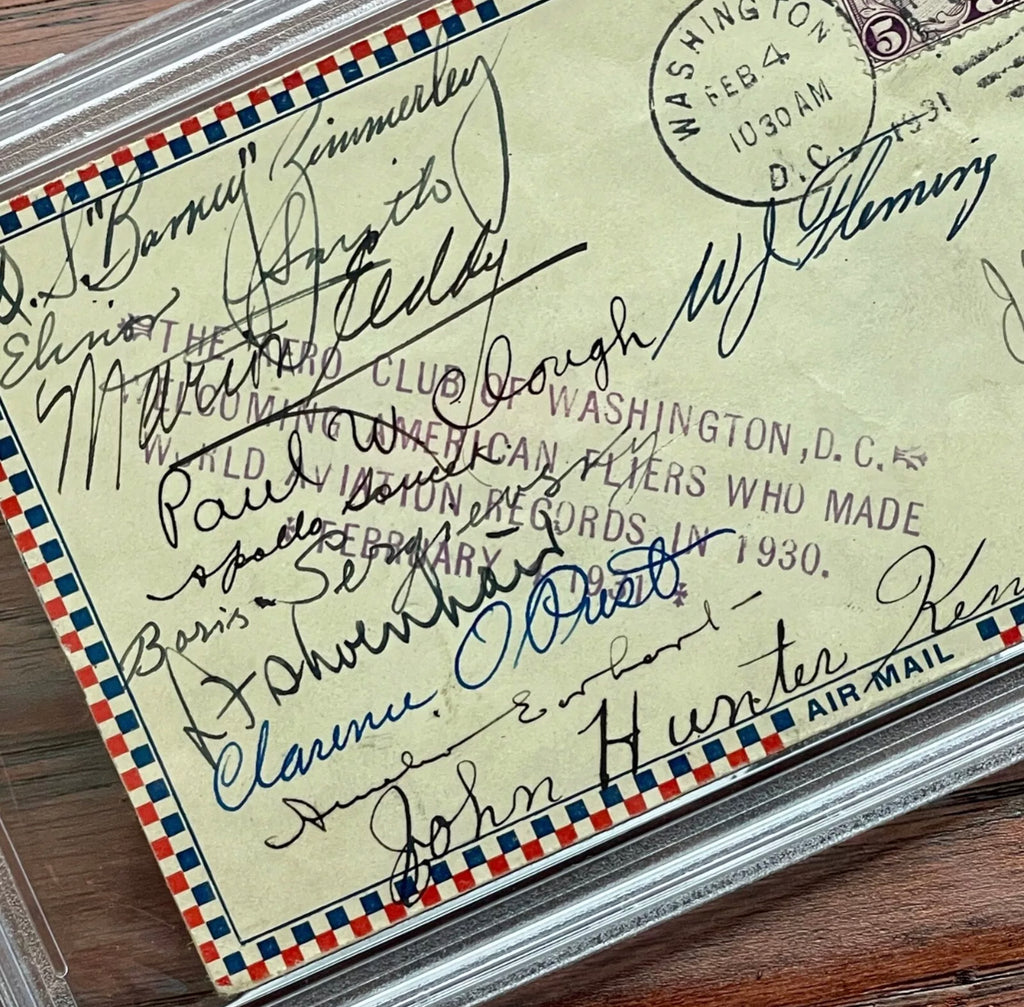 WASHINGTON
FEB 4
10 30 AM
D.C.
1931
5
D. S. "Barney" Zimmerley
Elinor Smith
Marion Eddy
W J Fleming
Paul W Clough
*THE AERO CLUB OF WASHINGTON, D.C.*
WELCOMING AMERICAN FLIERS WHO MADE
WORLD AVIATION RECORDS IN 1930.
* FEBRUARY 1931 *
Apollo Soucek
Boris Sergievsky
Shoenhair
Clarence O Prest
Amelia Earhart
John Hunter
Ken
AIR MAIL